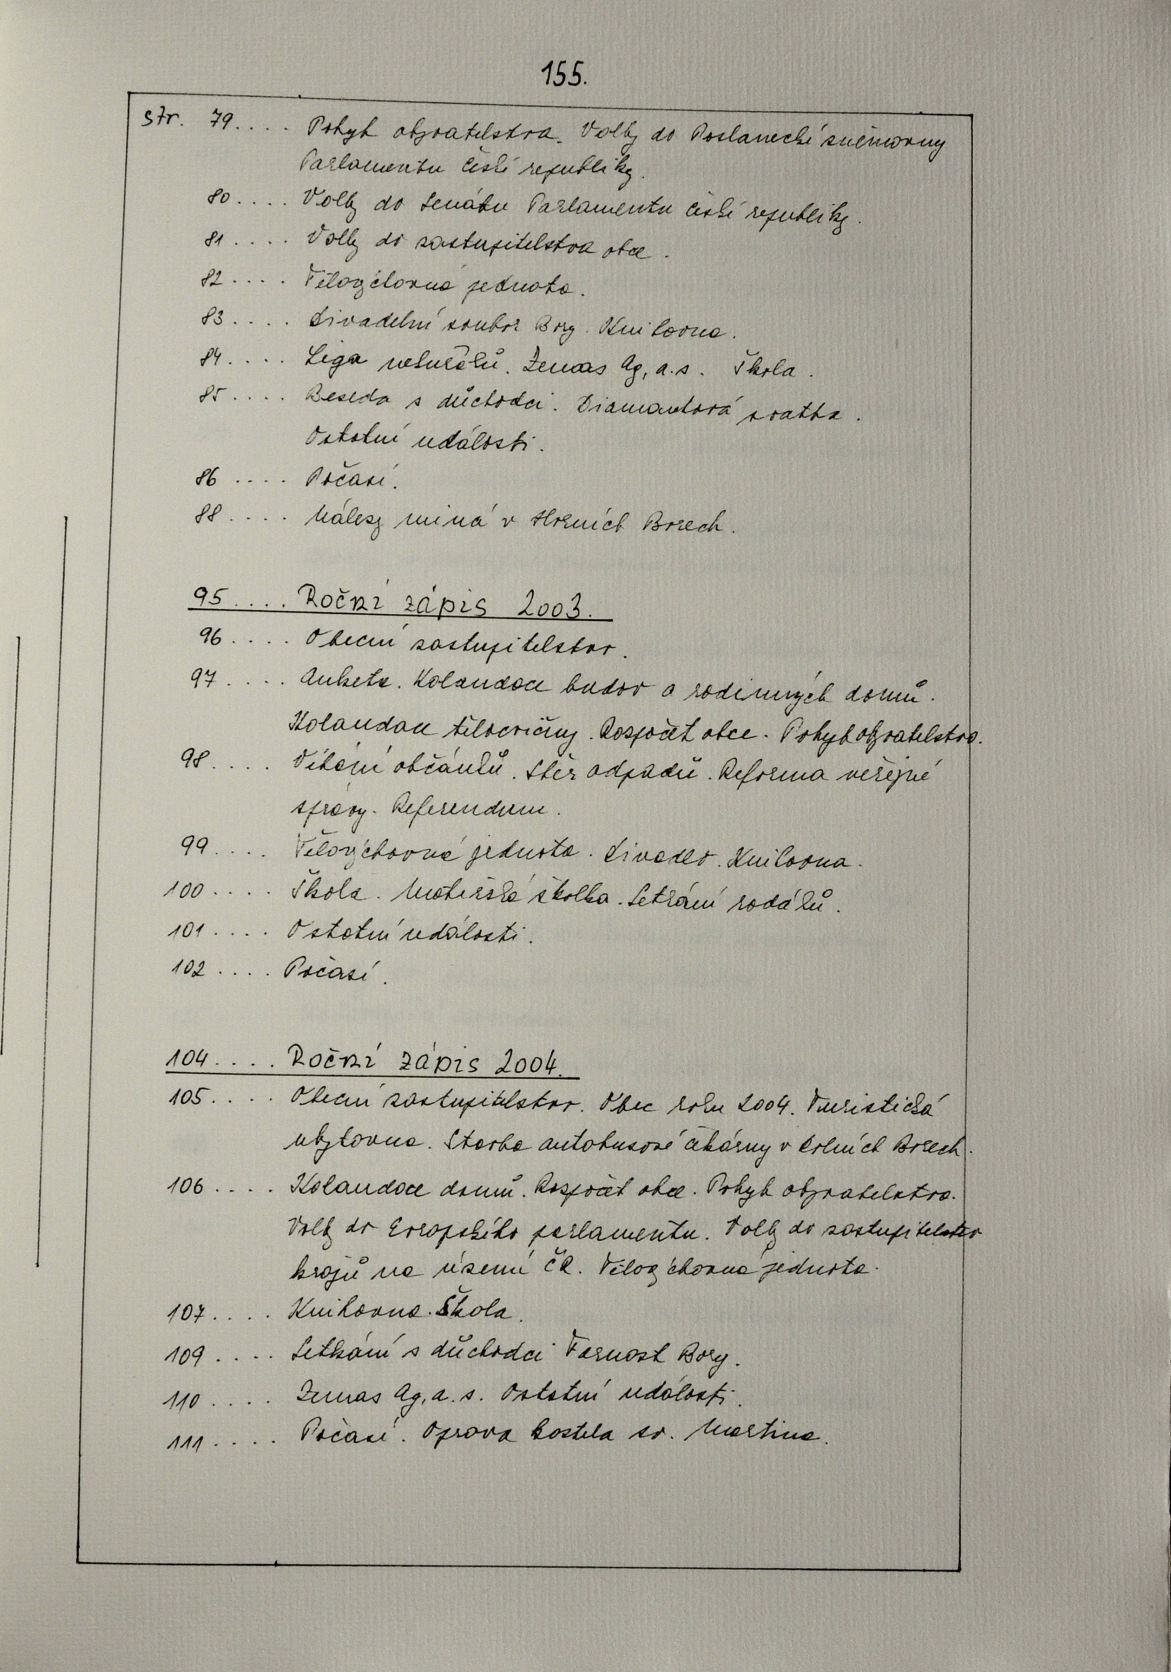 155.
str. 79.... Pohyb obyvatelstva. Volby do Poslanecké sněmovny
Parlamentu české republiky.
80.... Volby do Senátu Parlamentu české republiky.
81.... Volby do zastupitelstva obce.
82.... Tělovýchovná jednota.
83.... Divadelní soubor Bory. Knihovna.
84.... Liga neturálů. Zemas Ag, a.s. Škola.
85.... Beseda s důchodci. Diamantová svatba.
Ostatní události.
86.... Počasí.
88.... Nálezy miná v Horních Borech.
95.... Roční zápis 2003.
96.... Obecní zastupitelstvo.
97.... Anketa. Kolaudace budov a rodinných domů.
Kolaudace tělocvičny. Rozpočet obce. Pohyb obyvatelstva.
98.... Vítání občánků. Sběr odpadů. Reforma veřejné
správy. Referendum.
99.... Tělovýchovná jednota. Divadlo. Knihovna.
100.... Škola. Mateřská školka. Setkání rodáků.
101.... Ostatní události.
102.... Počasí.
104.... Roční zápis 2004.
105.... Obecní zastupitelstvo. Obec roku 2004. Turistická
ubytovna. Stavba autobusové čekárny v Dolních Borech.
106.... Kolaudace domů. Rozpočet obce. Pohyb obyvatelstva.
Volby do Evropského parlamentu. Volby do zastupitelstev
krajů na území ČR. Tělovýchovná jednota.
107.... Knihovna. Škola.
109.... Setkání s důchodci Farnost Bory.
110.... Zemas Ag, a.s. Ostatní události.
111.... Počasí. Oprava kostela sv. Martina.